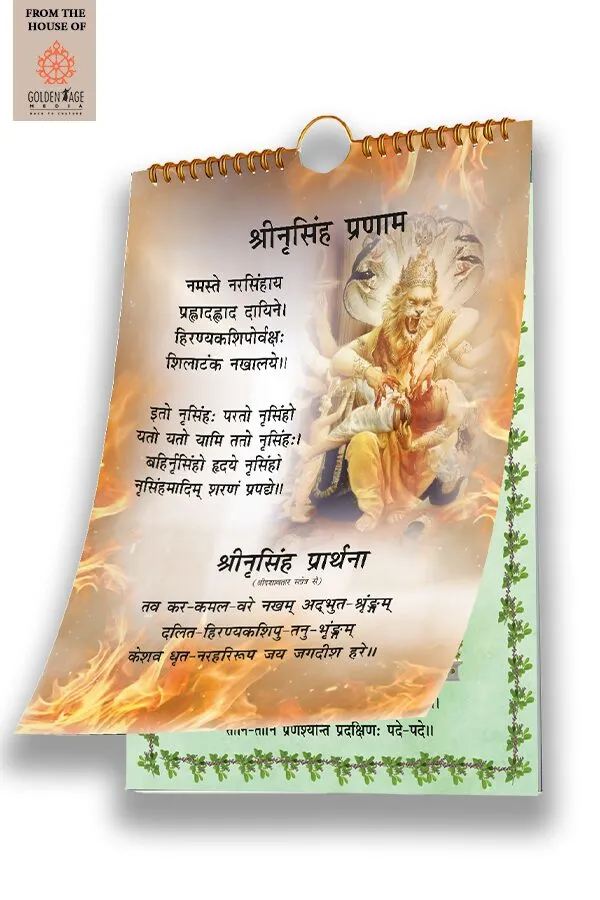 FROM THE
HOUSE OF
GOLDEN AGE
MEDIA
BACK TO CULTURE
श्रीनृसिंह प्रणाम
नमस्ते नरसिंहाय
प्रह्लादह्लाद दायिने।
हिरण्यकशिपोर्वक्षः
शिलाटंक नखालये॥
इतो नृसिंहः परतो नृसिंहो
यतो यतो यामि ततो नृसिंहः।
बहिर्नृसिंहो हृदये नृसिंहो
नृसिंहमादिम् शरणं प्रपद्ये॥
श्रीनृसिंह प्रार्थना
तव कर-कमल-वरे नखम् अद्भुत-श्रृंङ्गम्
दलित-हिरण्यकशिपु-तनु-भृंङ्गम्
केशव धृत-नरहरिरूप जय जगदीश हरे॥
प्रणश्यन्ति प्रदक्षिणः पदे-पदे॥